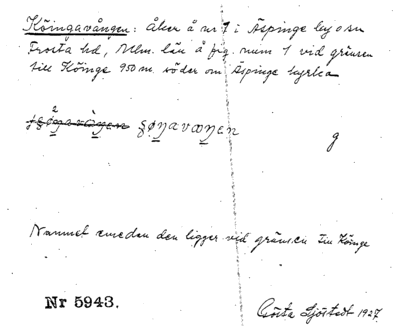 Köingavången: Åker å nr 7 i Äspinge by o sn
Frosta hd, Mlm. län å fig. num 1 vid gränsen
till Köinge 950 m. söder om Äspinge kyrka
ʃøŋavaŋen g
Namnet emedan den ligger vid gränsen till Köinge
Nr 5943.
Gösta Sjöstedt 1927.